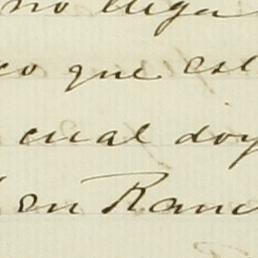 no llega
co que est
cual doy
en Ranc